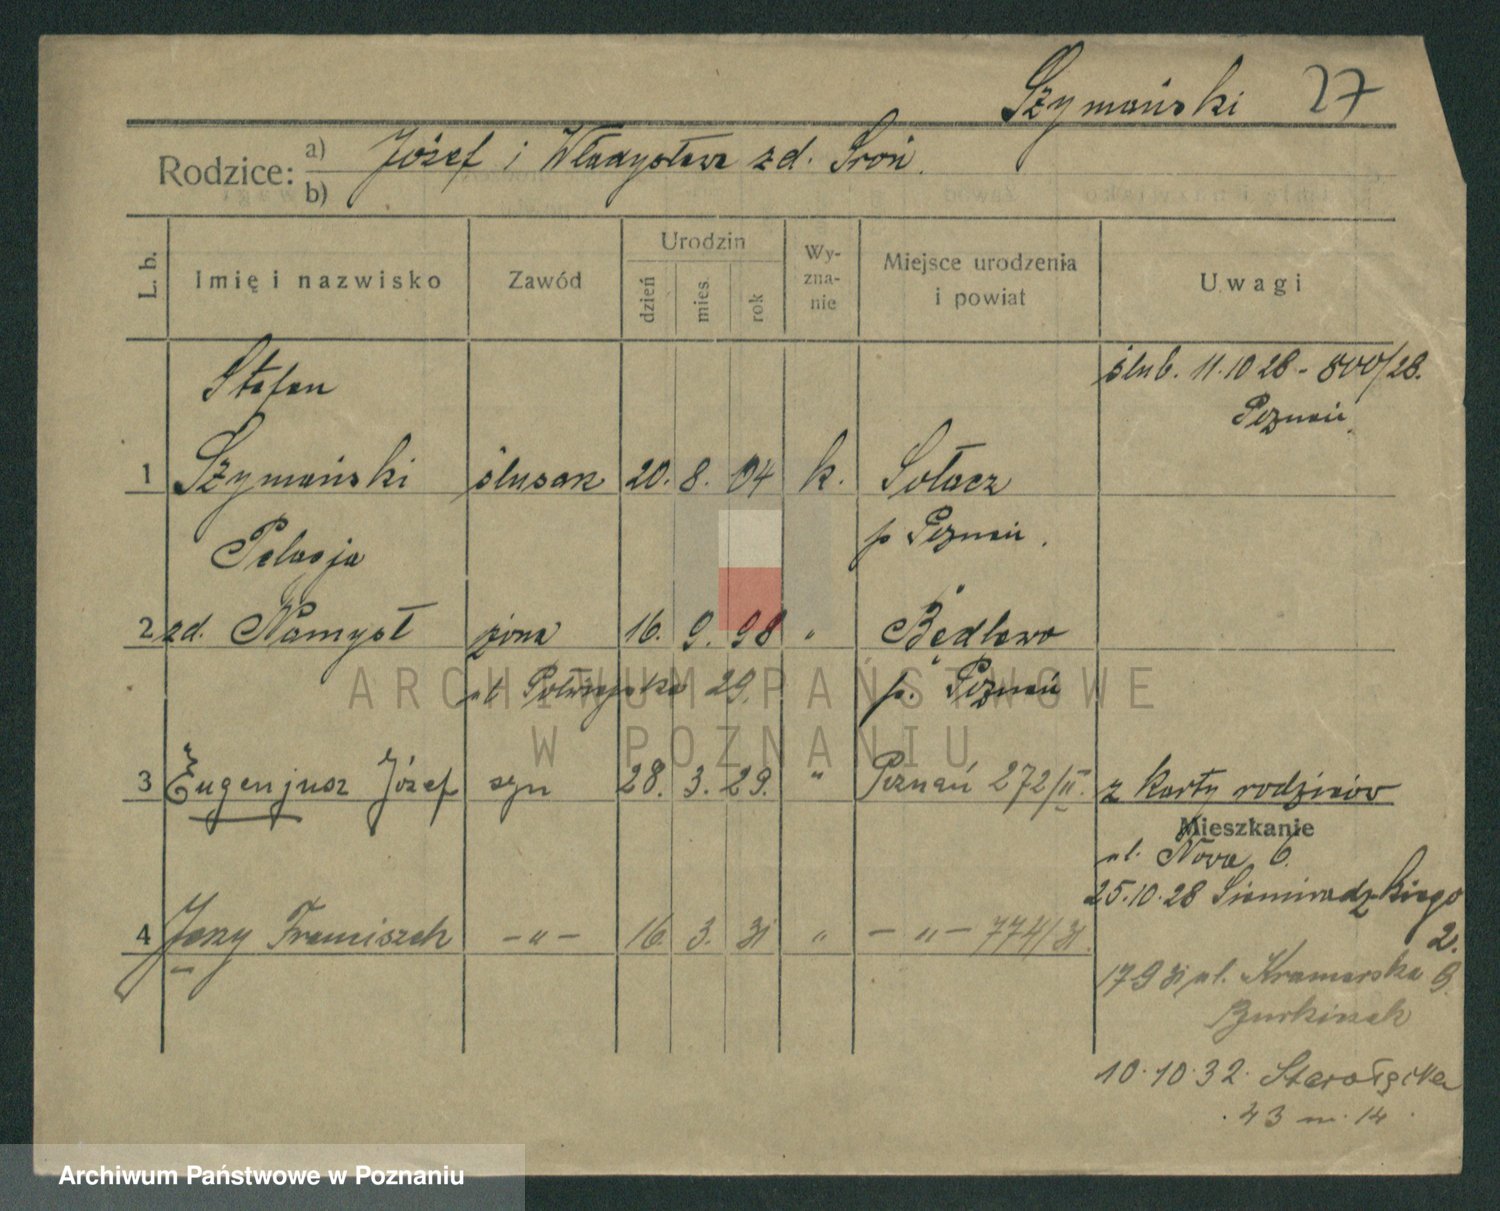 Szymański 27
Rodzice: a) Józef i Władysława zd. Sroń
b)
L. b. Imię i nazwisko Zawód Urodzin dzień mies. rok Wy-zna-nie Miejsce urodzenia i powiat Uwagi
Stefan ślub. 11.10 28 - 800/28.
Poznań
1 Szymański ślusarz 20. 8. 04 k. Sołacz
Pelagja p Poznań
2 zd. Namysł żona 16. 9. 98 " Będlewo
ul 29. p. Poznań
3 Eugenjusz Józef syn 28. 3. 29. " Poznań 272/II. z karty rodziców
Mieszkanie
ul. Nova 6.
25.10.28 Siemiradzkiego
2.
4 Jerzy Franciszek - " - 16. 3. 31 " - " - 774/31.
17 9 31 ul. Kramarska 9.
10.10.32. Starołęcka
43 m. 14
ARCHIWUM PAŃSTWOWE
W POZNANIU
Archiwum Państwowe w Poznaniu